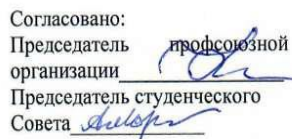 Согласовано:
Председатель профсоюзной
организации
Председатель студенческого
Совета